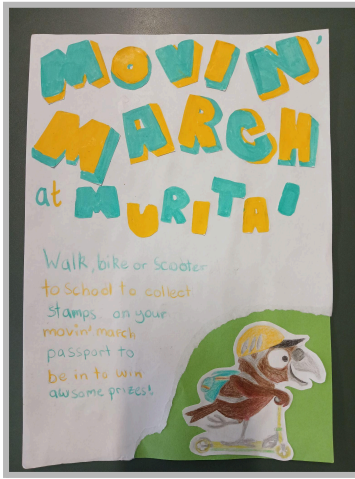 MOVIN'
MARCH
at MURITAI
Walk, bike or scooter
to school to collect
stamps on your
movin' march
passport to
be in to win
awsome prizes!